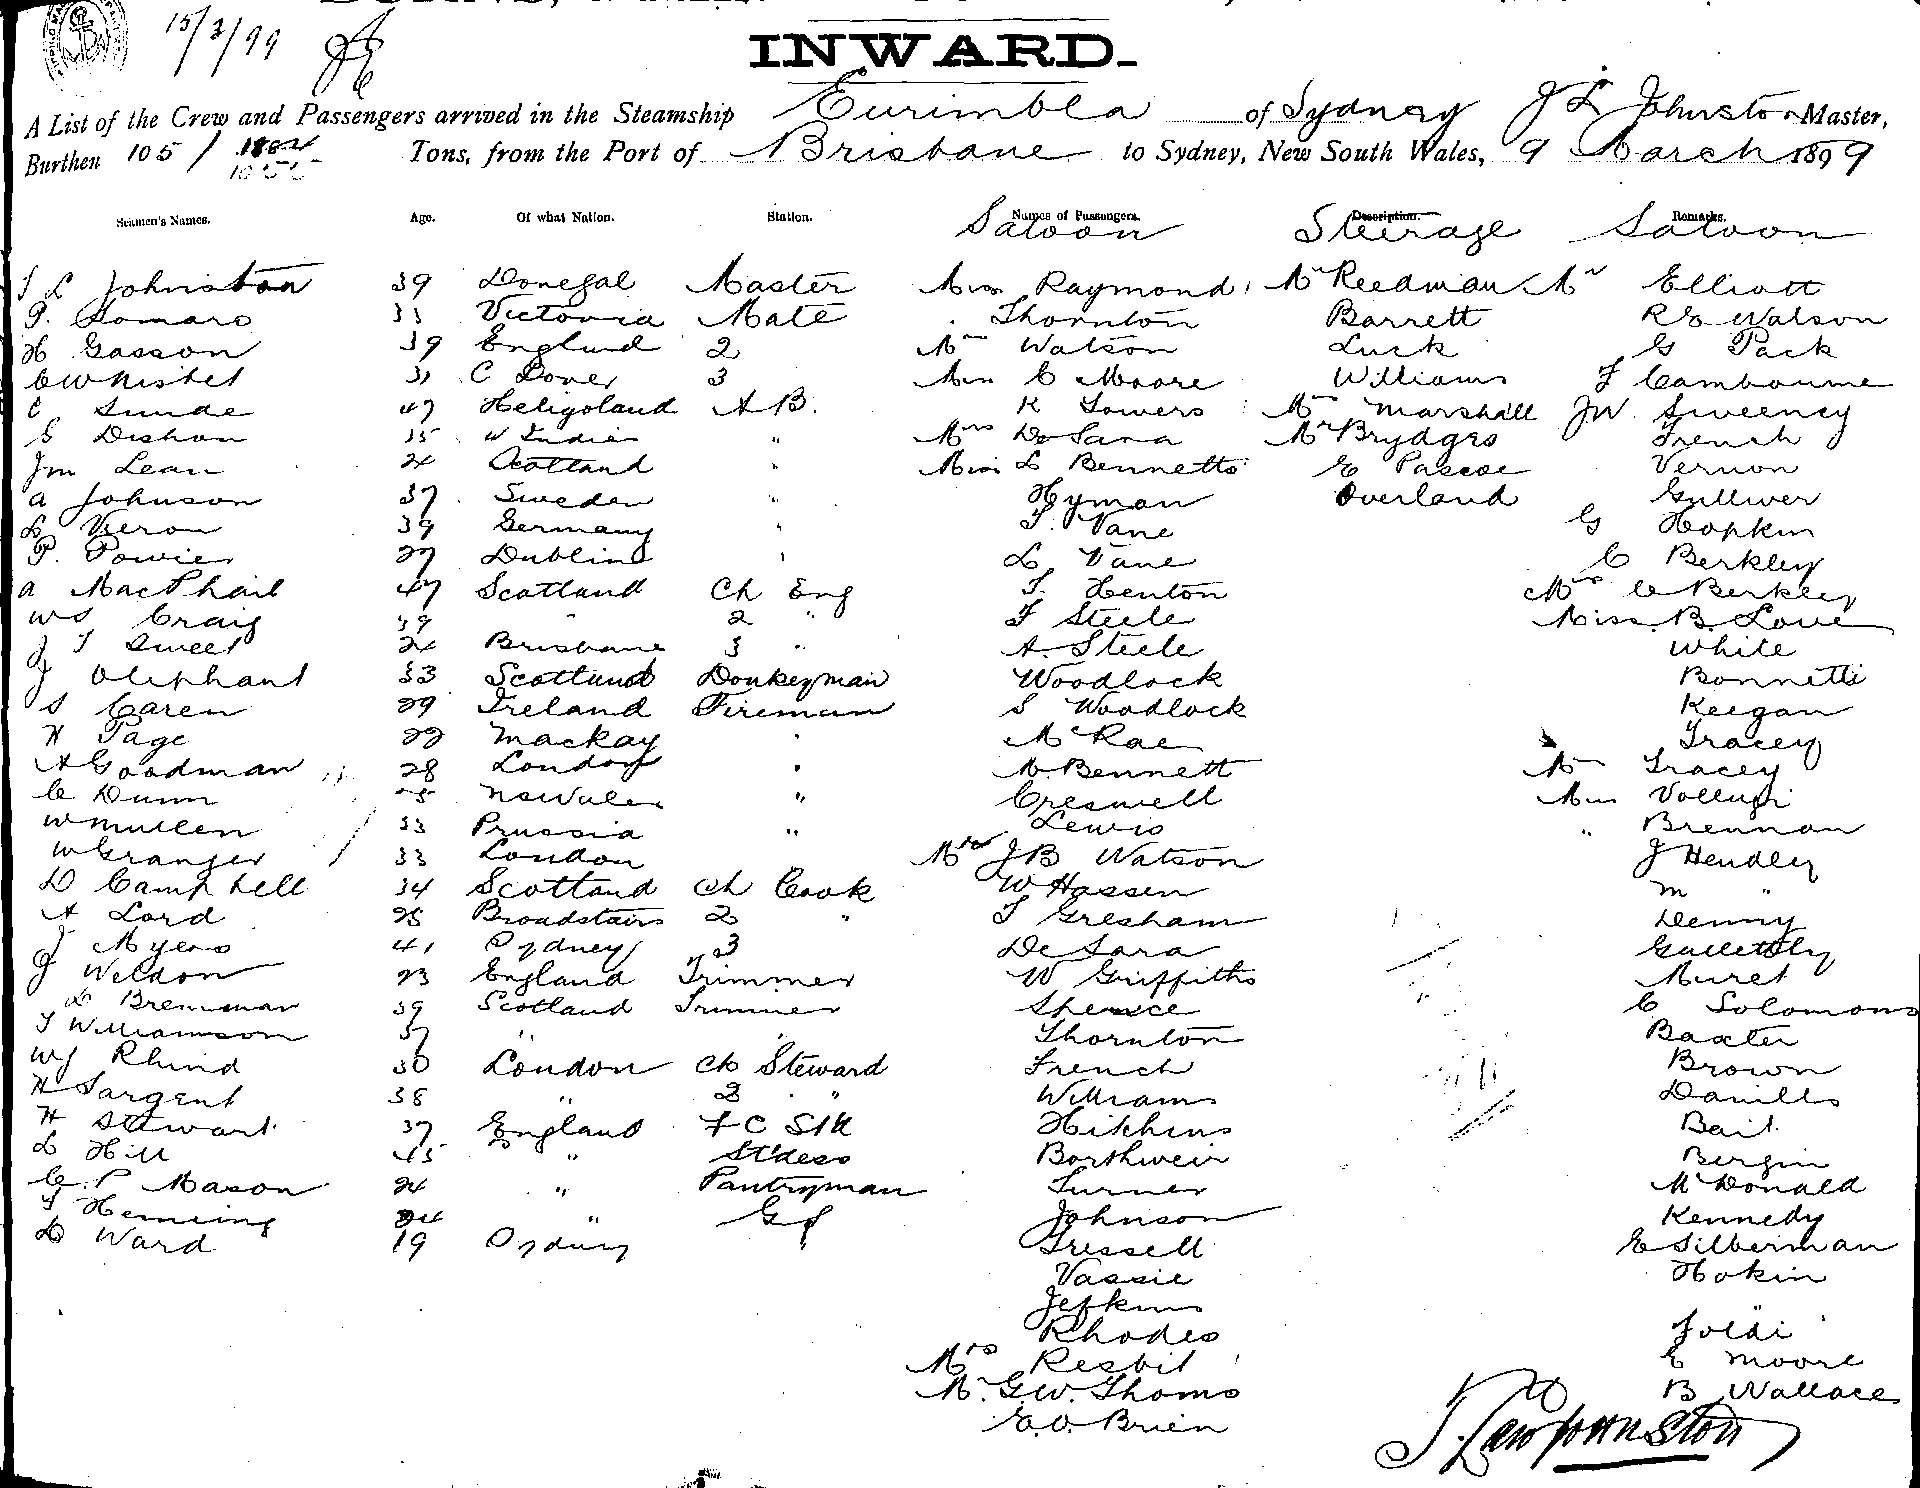 15/3/99
INWARD.
A List of the Crew and Passengers arrived in the Steamship Eurimbla of Sydney J L Johnston Master,
Burthen 105/ Tons, from the Port of Brisbane to Sydney, New South Wales, 9 March 1899
Seamen's Names. Age. Of what Nation. Station. Names of Passengers. Description. Remarks.
Saloon Steerage Saloon
J L Johnston 39 Donegal Master Miss Raymond Mr Reedman Mr Elliott
P. 33 Victoria Mate Thornton Barrett Watson
H Gasson 39 England 2 Mrs Watson Luck G Pack
C Whistel 31 C Dover 3 Miss C Moore Williams F Cambourne
C Sunde 47 Heligoland A B. K Sowers Mrs Marshall JW Sweeney
G Dishon 35 W Indies " Mrs De Sara Mr Brydges French
Jm Lean 24 Scotland " Miss L Bennetts E Pascoe Vernon
A Johnson 37 Sweden " Hyman Overland Gulliver
L Vieron 39 Germany " T. Vane G Hopkin
P. Power 27 Dublin " L Vane C Berkley
A MacPhail 47 Scotland Ch Eng T. Henton Mrs C Berkley
WS Craig 39 " 2 " F Steele Miss B. Love
J T Sweet 24 Brisbane 3 " A. Steele White
J Oliphant 33 Scotland Donkeyman Woodlock Bonnetti
S Caren 29 Ireland Fireman S Woodlock Keegan
H Page 22 Mackay " McRae Tracey
A Goodman 28 London " M. Bennett Mrs Tracey
C Dunn NSWales " Creswell Miss
W Mullen 33 Prussia " Lewis " Brennan
W Granger 33 London Mrs JB Watson J Hendley
D Campbell 34 Scotland Ch Cook W Hassen M "
A Lord 25 Broadstairs 2 " T Gresham Denny
J Myers 41 Sydney 3 De Sara Gullettly
J Weldon 23 England Trimmer W Griffiths Muret
L Brennan 39 Scotland Trimmer Spence C Solomons
T Williamson 37 " " Thornton Baxter
WJ Rhind 30 London Ch Steward French Brown
H Sargent 38 " 2 " Williams Daniells
H Stewart 37 England F C Stk Hikhins Bail
L Hill 45 " St'dess Borthweir Bergin
C. P Mason 24 " Pantryman Turner McDonald
T Hemsing 24 " GS Johnson Kennedy
L Ward 19 Sydney " Tressell E Silberman
Vassie Hokin
Jefkins
Rhodes Joldi
Mrs Resbit E Moore
Mr G.W. Thoms B Wallace
E. O. Brien
J. Law Johnston